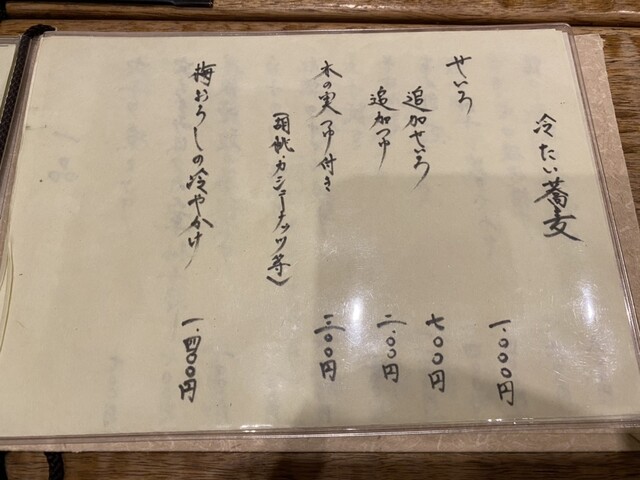 冷たい蕎麦
せいろ 一、〇〇〇円
追加せいろ 七〇〇円
追加つゆ 二〇〇円
木の実つゆ付き 三〇〇円
(胡桃・カシューナッツ等)
梅おろしの冷やかけ 一、四〇〇円